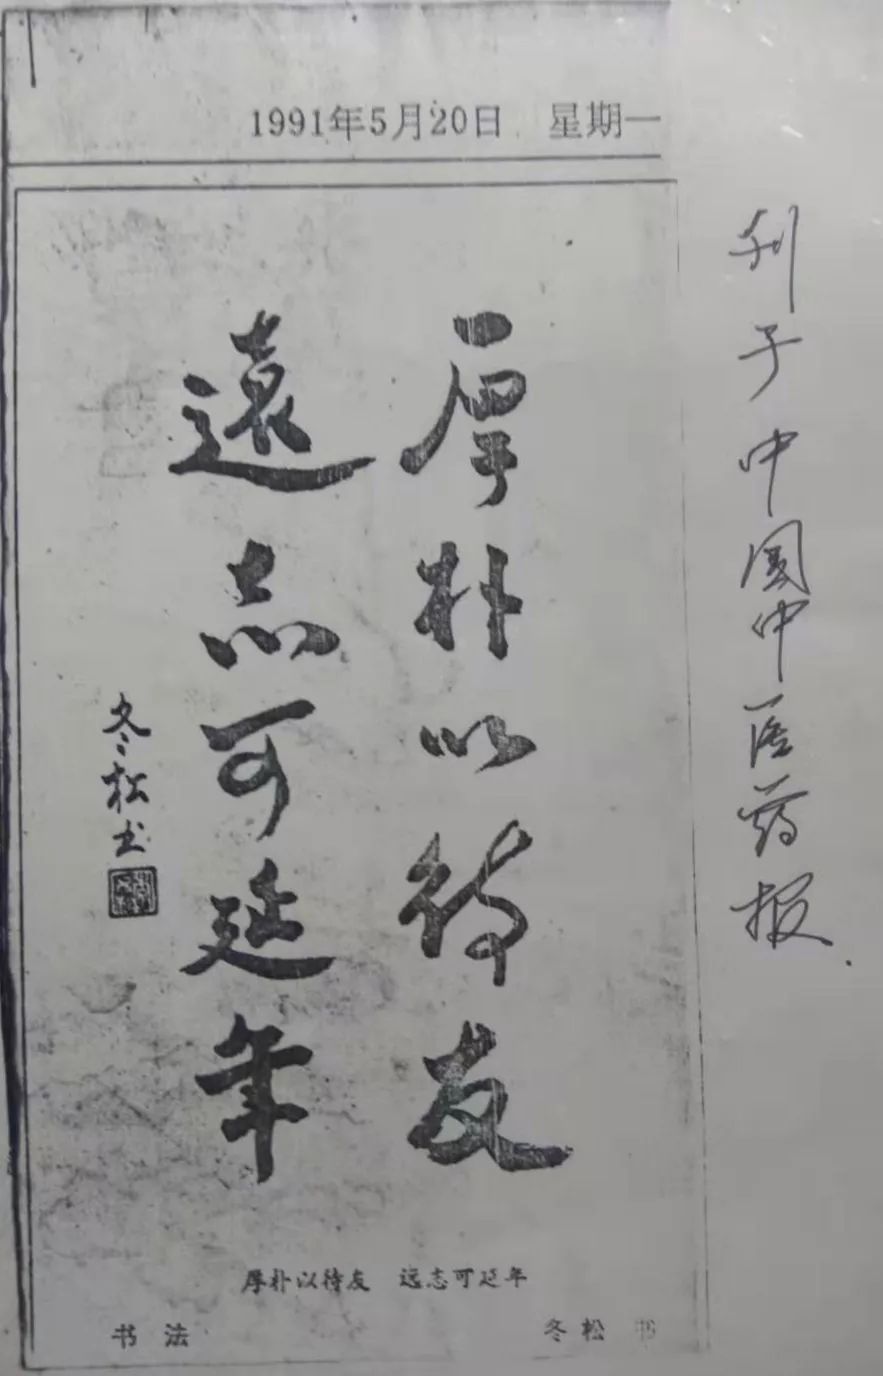 1991年5月20日 星期一
厚朴以待友
遠志可延年
冬松书
厚朴以待友 远志可延年
书法 冬松 书
刊于中国中医药报